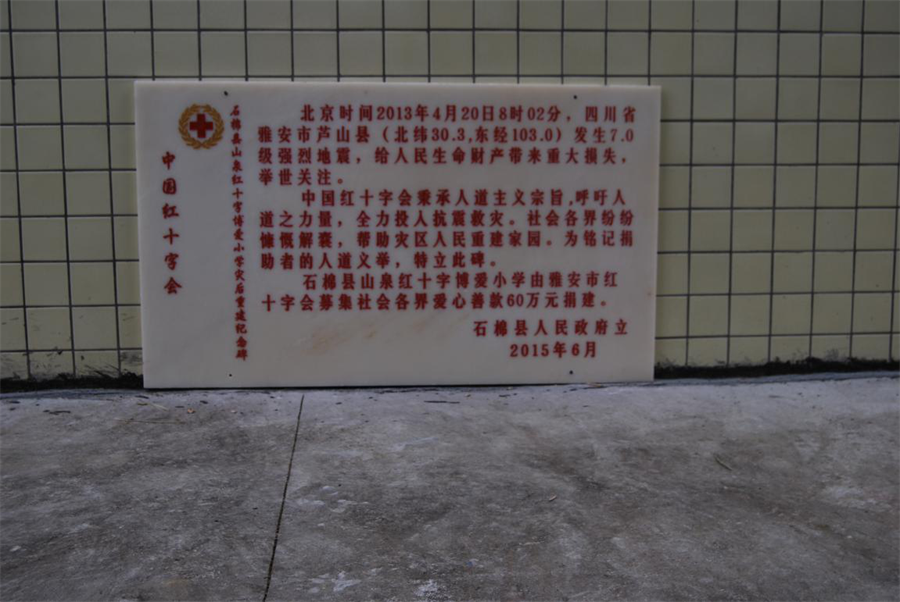 中国红十字会
石棉县山泉红十字博爱小学灾后重建纪念碑
北京时间2013年4月20日8时02分，四川省
雅安市芦山县（北纬30.3,东经103.0）发生7.0
级强烈地震，给人民生命财产带来重大损失，
举世关注。
中国红十字会秉承人道主义宗旨,呼吁人
道之力量，全力投入抗震救灾。社会各界纷纷
慷慨解囊，帮助灾区人民重建家园。为铭记捐
助者的人道义举，特立此碑。
石棉县山泉红十字博爱小学由雅安市红
十字会募集社会各界爱心善款60万元捐建。
石棉县人民政府立
2015年6月